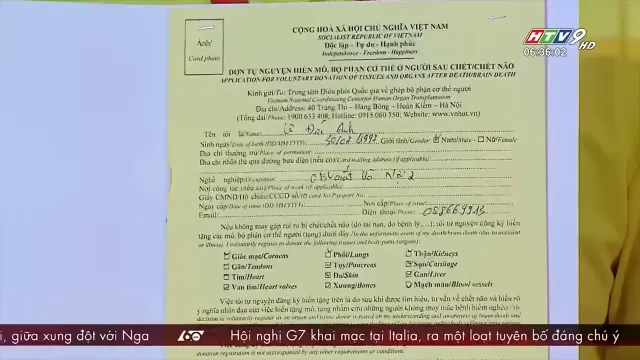 HTV9 HD
06:36:02
Ảnh/
Card photo
CỘNG HOÀ XÃ HỘI CHỦ NGHĨA VIỆT NAM
SOCIALIST REPUBLIC OF VIETNAM
Độc lập - Tự do - Hạnh phúc
Independence - Freedom - Happiness
ĐƠN TỰ NGUYỆN HIẾN MÔ, BỘ PHẬN CƠ THỂ Ở NGƯỜI SAU CHẾT/CHẾT NÃO
APPLICATION FOR VOLUNTARY DONATION OF TISSUES AND ORGANS AFTER DEATH/BRAIN DEATH
Kính gửi/To: Trung tâm Điều phối Quốc gia về ghép bộ phận cơ thể người
Vietnam National Coordinating Center for Human Organ Transplantation
Địa chỉ/Address: 40 Tràng Thi - Hàng Bông - Hoàn Kiếm - Hà Nội
(Tổng đài/Phone: 1900 633 408; Hotline: 0915 060 550; Website: www.vnhot.vn)
Tên tôi là/Name: Lê Đức Anh
Sinh ngày/Date of birth (DD/MM/YYYY): Giới tính/Gender: Nam/Male Nữ/Female
Địa chỉ thường trú/Place of permanent:
Địa chỉ nhận thẻ qua đường bưu điện (nếu có)/Card mailing address (if applicable):
Nghề nghiệp/Occupation:
Nơi công tác (nếu có)/Place of work (if applicable):
Giấy CMND/Hộ chiếu/CCCD số/ID card No/Passport No:
Ngày cấp/Date of issue (DD/MM/YYYY): Nơi cấp/Place of issue:
Email: Điện thoại/Phone:
Nếu không may gặp rủi ro bị chết/chết não (do tai nạn, do bệnh lý...), tôi tự nguyện đăng ký hiến
tặng các mô, bộ phận cơ thể người (tạng) dưới đây:/In the unfortunate event of my death/brain death (due to accident
or illness), I voluntarily register to donate the following tissues and body parts (organs):
Giác mạc/Corneas Phổi/Lungs Thận/Kidneys
Gân/Tendons Tụy/Pancreas Sụn/Cartilage
Tim/Heart Da/Skin Gan/Liver
Van tim/Heart valves Xương/Bones Mạch máu/Blood vessels
Việc tôi tự nguyện đăng ký hiến tặng trên là do sau khi được tìm hiểu, tư vấn về chết não và hiểu rõ
ý nghĩa nhân đạo của việc hiến, cứu chữa những người không may mắc bệnh hiểm nghèo
i, giữa xung đột với Nga
60
Hội nghị G7 khai mạc tại Italia, ra một loạt tuyên bố đáng chú ý